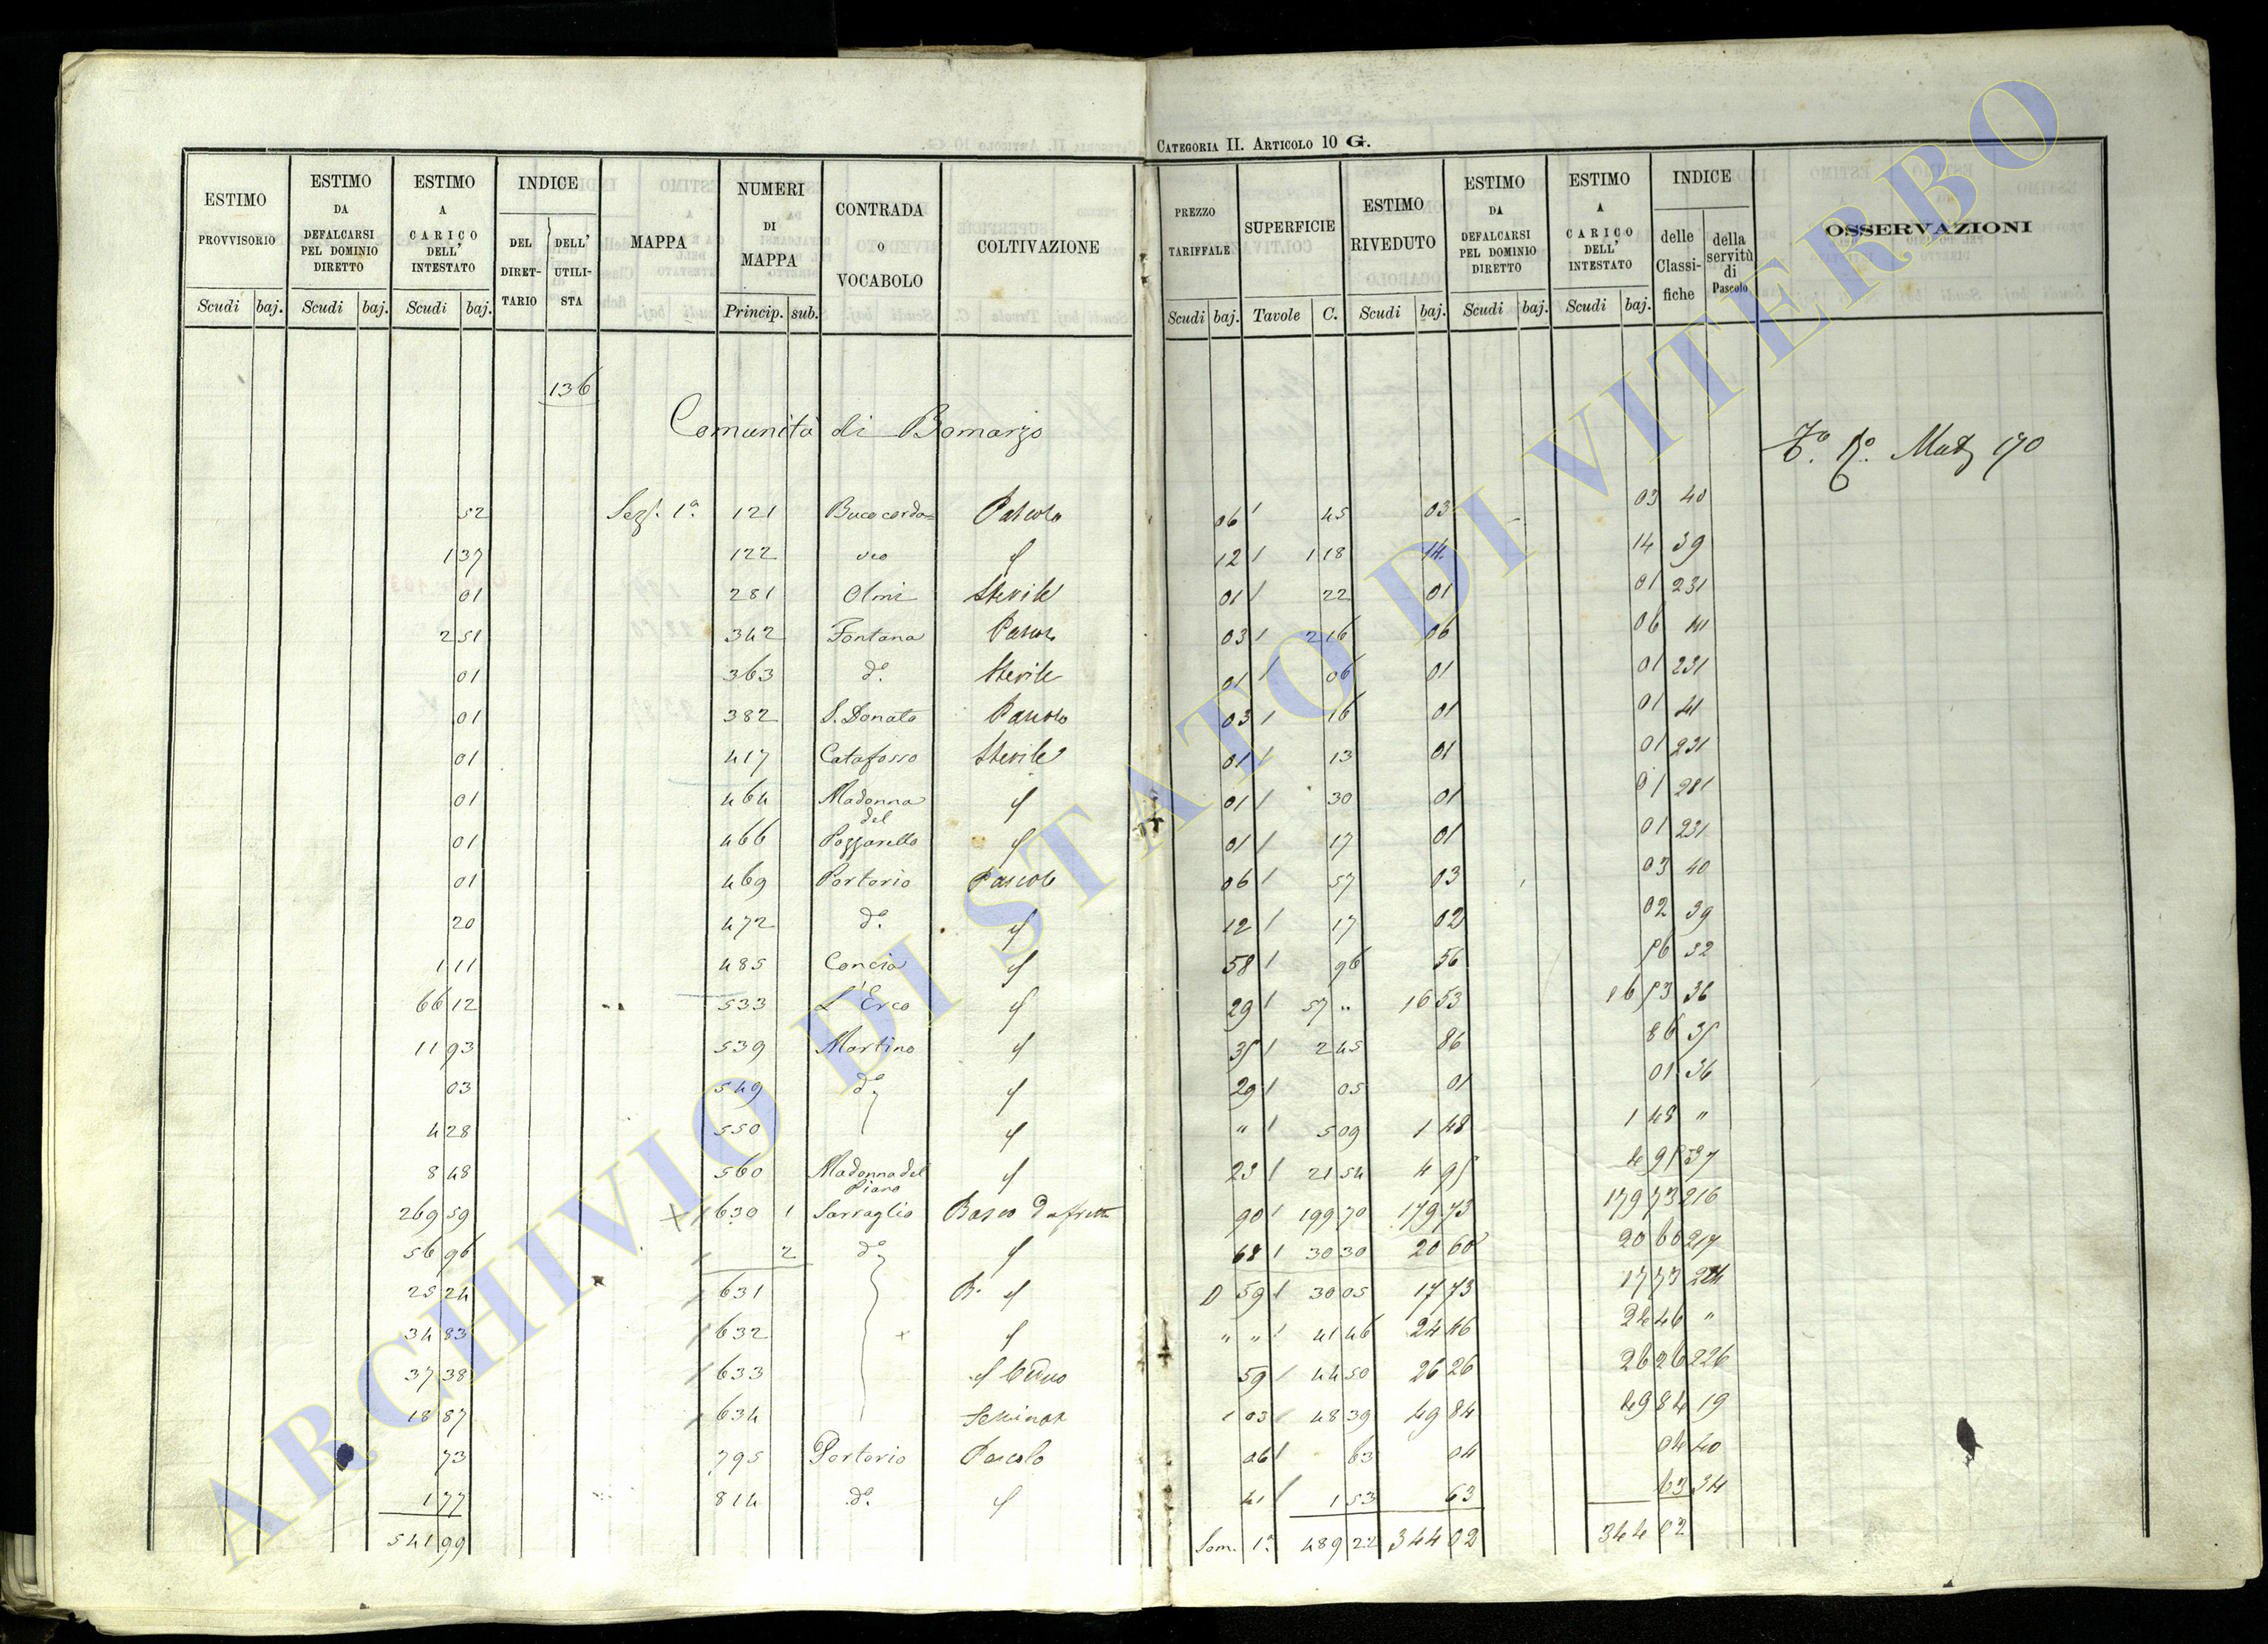 CATEGORIA II. ARTICOLO 10 G.
ESTIMO PROVVISORIO Scudi baj.
ESTIMO DA DEFALCARSI PEL DOMINIO DIRETTO Scudi baj.
ESTIMO A CARICO DELL' INTESTATO Scudi baj.
INDICE DEL DIRETTARIO DELL' UTILISTA
MAPPA
NUMERI DI MAPPA Princip. sub.
CONTRADA O VOCABOLO
COLTIVAZIONE
PREZZO TARIFFALE Scudi baj.
SUPERFICIE Tavole C.
ESTIMO RIVEDUTO Scudi baj.
ESTIMO DA DEFALCARSI PEL DOMINIO DIRETTO Scudi baj.
ESTIMO A CARICO DELL' INTESTATO Scudi baj.
INDICE delle Classifiche della servitù di Pascolo
OSSERVAZIONI
136
Comunità di Bomarzo
Mat 170
52 Sez. 1a 121 Bucacorda= Pascolo 06 45 03 03 40
1 37 122 12 1 18 14 14 39
01 281 Olmi Sterile 01 22 01 01 231
2 51 342 Fontana Pascolo 03 2 16 06 06 41
01 363 do. Sterile 01 06 01 01 231
01 382 S. Donato Pascolo 03 16 01 01 41
01 417 Catafosso Sterile 01 13 01 01 231
01 464 Madonna del 01 30 01 01 231
01 466 Pozzarello 01 17 01 01 231
01 469 Portorio Pascolo 06 57 03 03 40
20 472 do. 12 17 02 02 39
1 11 485 Concia 58 96 56 56 32
66 12 533 L'Erco 29 57 " 16 53 16 53 36
11 93 539 Martino 35 2 45 86 86 35
03 549 do. 29 05 01 01 36
4 28 550 " 5 09 1 48 1 48 "
8 48 560 Madonna del Piano 23 21 54 4 95 4 95 37
269 59 630 1 Sarraglio Bosco 90 199 70 179 73 179 73 216
56 96 2 do. 68 30 30 20 60 20 60 217
25 24 631 B. 59 30 05 17 73 17 73 224
34 83 632 " " 41 46 24 46 24 46 "
37 38 633 59 44 50 26 26 26 26 226
18 87 634 1 03 48 39 49 84 49 84 19
73 795 Portorio Pascolo 06 63 04 04 40
1 77 814 do. 41 1 53 63 63 34
541 99 Som. 1a 489 22 344 02 344 02
ARCHIVIO DI STATO DI VITERBO